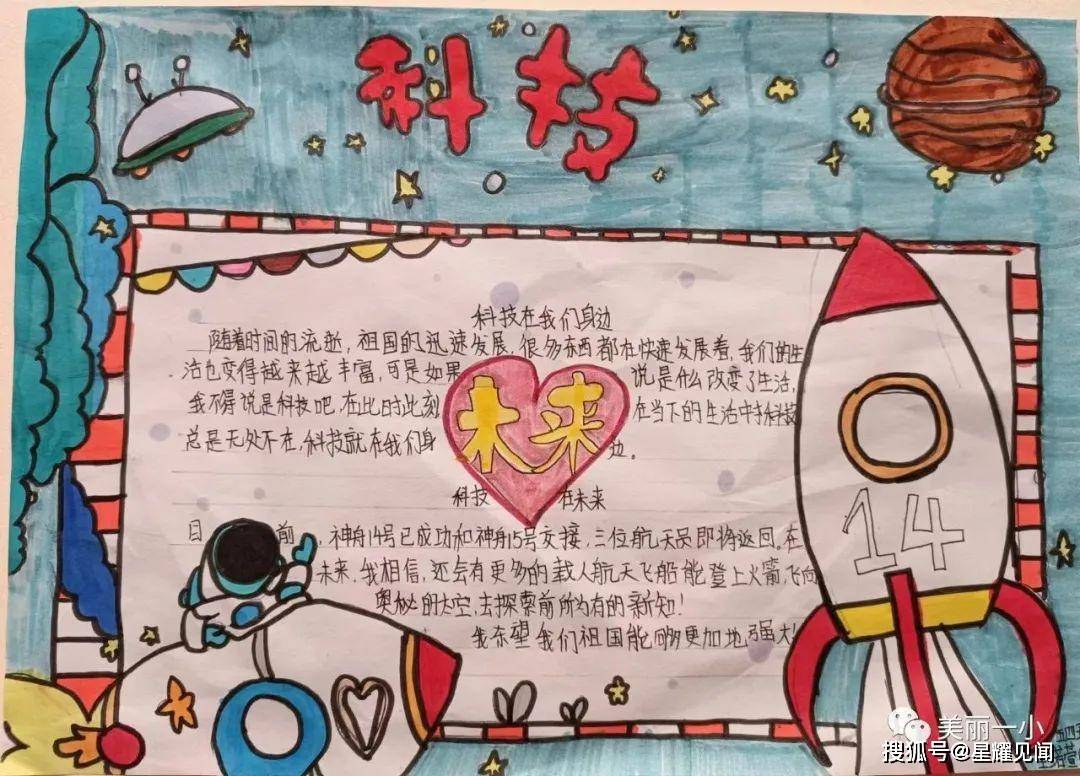 科技
科技在我们身边
随着时间的流逝,祖国的迅速发展,很多东西都在快速发展着,我们的生
活也变得越来越丰富,可是如果 说是什么改变了生活,
我不得说是科技吧,在此时此刻 在当下的生活中科技
总是无处不在,科技就在我们身 边。
未来
科技 在未来
目 前,神舟14号已成功和神舟15号交接,三位航天员即将返回。在
未来,我相信,还会有更多的载人航天飞船能登上火箭,飞向
奥秘的太空,去探索前所为有的新知!
我希望我们祖国能够更加地强大!
14
美丽一小
搜狐号@星耀见闻